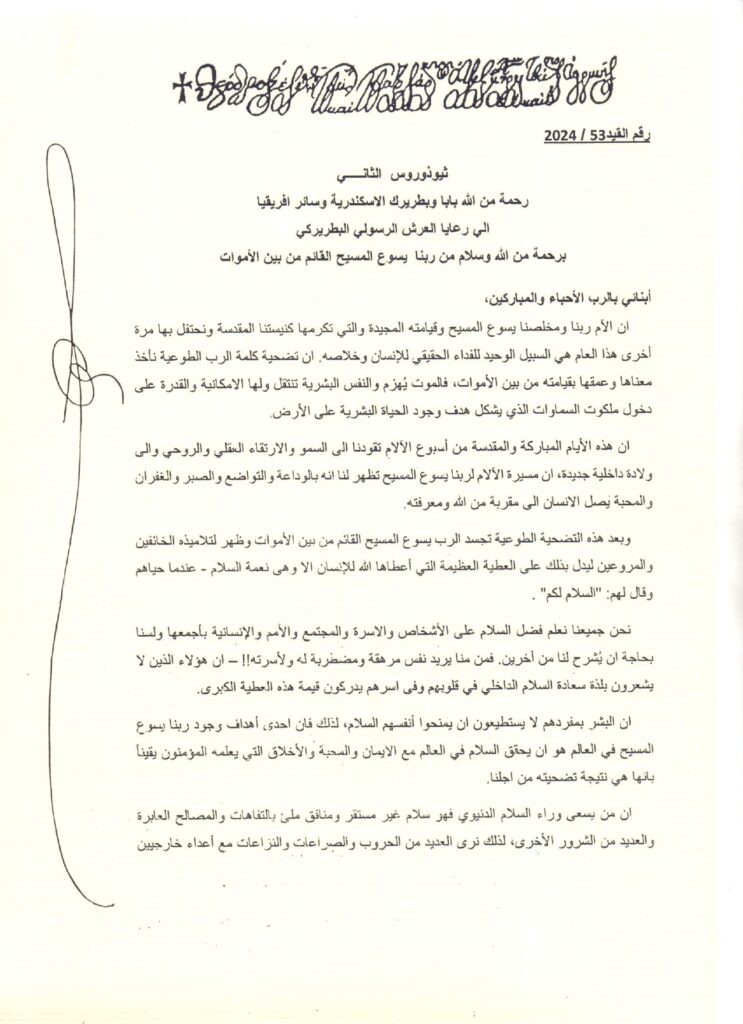 رقم القيد53 / 2024
ثيوذوروس الثانـــــي
رحمة من الله بابا وبطريرك الاسكندرية وسائر افريقيا
الي رعايا العرش الرسولي البطريركي
برحمة من الله وسلام من ربنا يسوع المسيح القائم من بين الأموات
أبنائي بالرب الأحباء والمباركين،
ان الأم ربنا ومخلصنا يسوع المسيح وقيامته المجيدة والتي تكرمها كنيستنا المقدسة ونحتفل بها مرة
أخرى هذا العام هي السبيل الوحيد للفداء الحقيقي للإنسان وخلاصه. ان تضحية كلمة الرب الطوعية تأخذ
معناها وعمقها بقيامته من بين الأموات، فالموت يُهزم والنفس البشرية تنتقل ولها الامكانية والقدرة على
دخول ملكوت السماوات الذي يشكل هدف وجود الحياة البشرية على الأرض.
ان هذه الأيام المباركة والمقدسة من أسبوع الآلام تقودنا الى السمو والارتقاء العقلي والروحي والى
ولادة داخلية جديدة، ان مسيرة الآلام لربنا يسوع المسيح تظهر لنا انه بالوداعة والتواضع والصبر والغفران
والمحبة يَصل الانسان الى مقربة من الله ومعرفته.
وبعد هذه التضحية الطوعية تجسد الرب يسوع المسيح القائم من بين الأموات وظهر لتلاميذه الخائفين
والمروعين ليدل بذلك على العطية العظيمة التي أعطاها الله للإنسان الا وهى نعمة السلام - عندما حياهم
وقال لهم: "السلام لكم" .
نحن جميعنا نعلم فضل السلام على الأشخاص والاسرة والمجتمع والأمم والإنسانية بأجمعها ولسنا
بحاجة ان يُشرح لنا من آخرين. فمن منا يريد نفس مرهقة ومضطربة له ولأسرته!! – ان هؤلاء الذين لا
يشعرون بلذة سعادة السلام الداخلي في قلوبهم وفى اسرهم يدركون قيمة هذه العطية الكبرى.
ان البشر بمفردهم لا يستطيعون ان يمنحوا أنفسهم السلام، لذلك فان احدى أهداف وجود ربنا يسوع
المسيح في العالم هو ان يحقق السلام في العالم مع الايمان والمحبة والأخلاق التي يعلمه المؤمنون يقيناً
بانها هي نتيجة تضحيته من اجلنا.
ان من يسعى وراء السلام الدنيوي فهر سلام غير مستقر ومنافق ملئ بالتفاهات والمصالح العابرة
والعديد من الشرور الأخرى، لذلك نرى العديد من الحروب والصراعات والنزاعات مع أعداء خارجيين